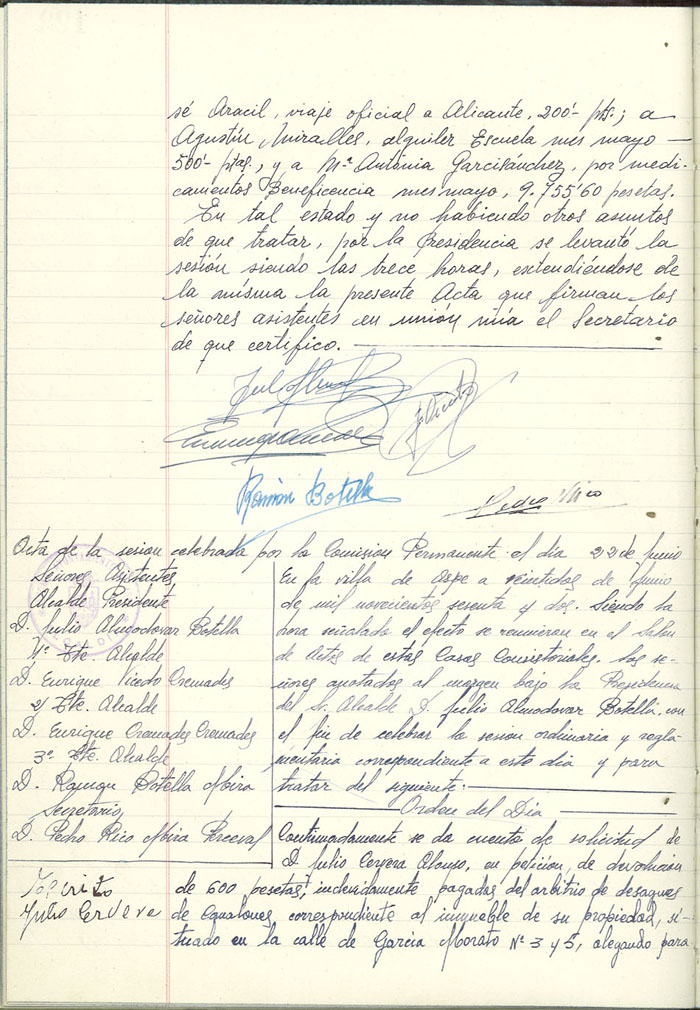 sé Aracil, viaje oficial a Alicante, 200'- pts; a
Agustín Miralles, alquiler Escuela mes mayo —
500'- ptas., y a Mª Antonia Garcisánchez, por medi-
camentos Beneficencia mes mayo, 9,755'60 pesetas.
En tal estado y no habiendo otros asuntos
de que tratar, por la Presidencia se levantó la
sesión siendo las trece horas, extendiéndose de
la misma la presente Acta que firman los
señores asistentes en unión mía el Secretario
de que certifico.
Ramón Botella
Pedro Rico
Acta de la sesion celebrada por la Comision Permanente el dia 22 de Junio
Señores Asistentes
Alcalde Presidente
D. Julio Almodovar Botella
1º Tte. Alcalde
D. Enrique Vicedo Cremades
2º Tte. Alcalde
D. Enrique Cremades Cremades
3º Tte. Alcalde
D. Ramon Botella Mira
Secretario
D. Pedro Rico Mira Perceval
En la villa de Aspe a veintidos de Junio
de mil novecientos sesenta y dos. Siendo la
hora señalada al efecto se reunieron en el Salon
de Actos de estas Casas Consistoriales. Los se-
ñores anotados al margen bajo la Presidencia
del Sr. Alcalde D. Julio Almodovar Botella, con
el fin de celebrar la sesion ordinaria y regla-
mentaria correspondiente a este dia y para
tratar del siguiente:
Orden del Dia
Continuadamente se da cuenta de solicitud de
D. Julio Cervera Alonso, en peticion, de devolucion
de 600 pesetas, indevidamente pagadas del arbitrio de desagues
de Canalones, correspondiente al inmueble de su propiedad, si-
tuado en la calle de Garcia Morato Nº 3 y 5, alegando para
Escrito
Julio Cervera